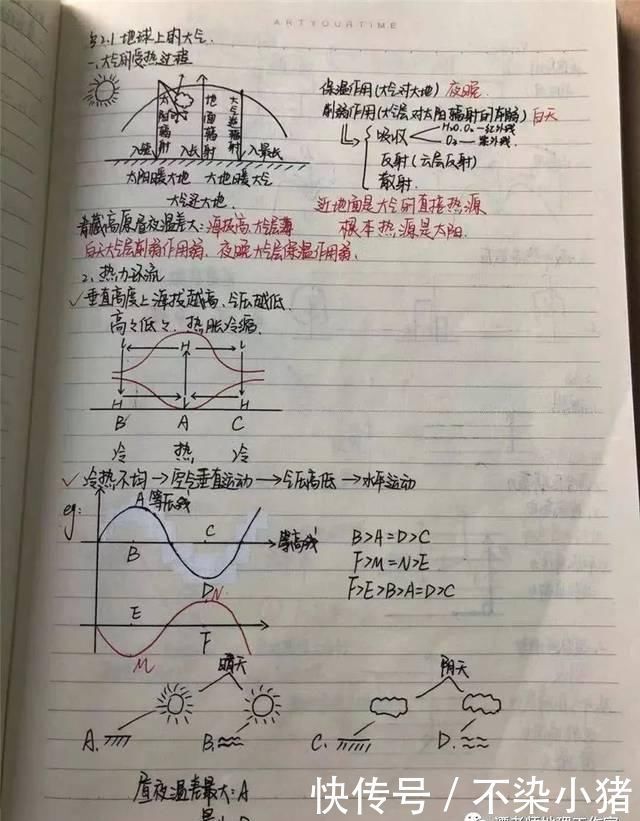 ARTYOURTIME
§2.1 地球上的大气.
一、大气的受热过程
太阳辐射
地面辐射
大气逆辐射
入缝 入长 入最长
太阳暖大地 大地暖大气
大气还大地
保温作用(大气对大地) 夜晚
削弱作用(大气层对太阳辐射的削弱) 白天
吸收
H₂O. O₂ — 红外线
O₃ — 紫外线.
反射(云层反射)
散射.
近地面是大气的直接热源
根本热源是太阳.
青藏高原昼夜温差大: 海拔高、大气层薄
白天大气层削弱作用弱、夜晚大气层保温作用弱.
2、热力环流
✓垂直高度上海拔越高、气压越低.
高高低低、热胀冷缩.
L H L
H L H
B A C
冷 热 冷
✓冷热不均→空气垂直运动→气压高低→水平运动
eg:
A 等压线
B C 等高线
D N
E F
M
B>A=D>C
F>M=N>E
F>E>B>A=D>C
晴天 阴天
A. B. C. D.
昼夜温差最大: A
快传号 / 不染小猪